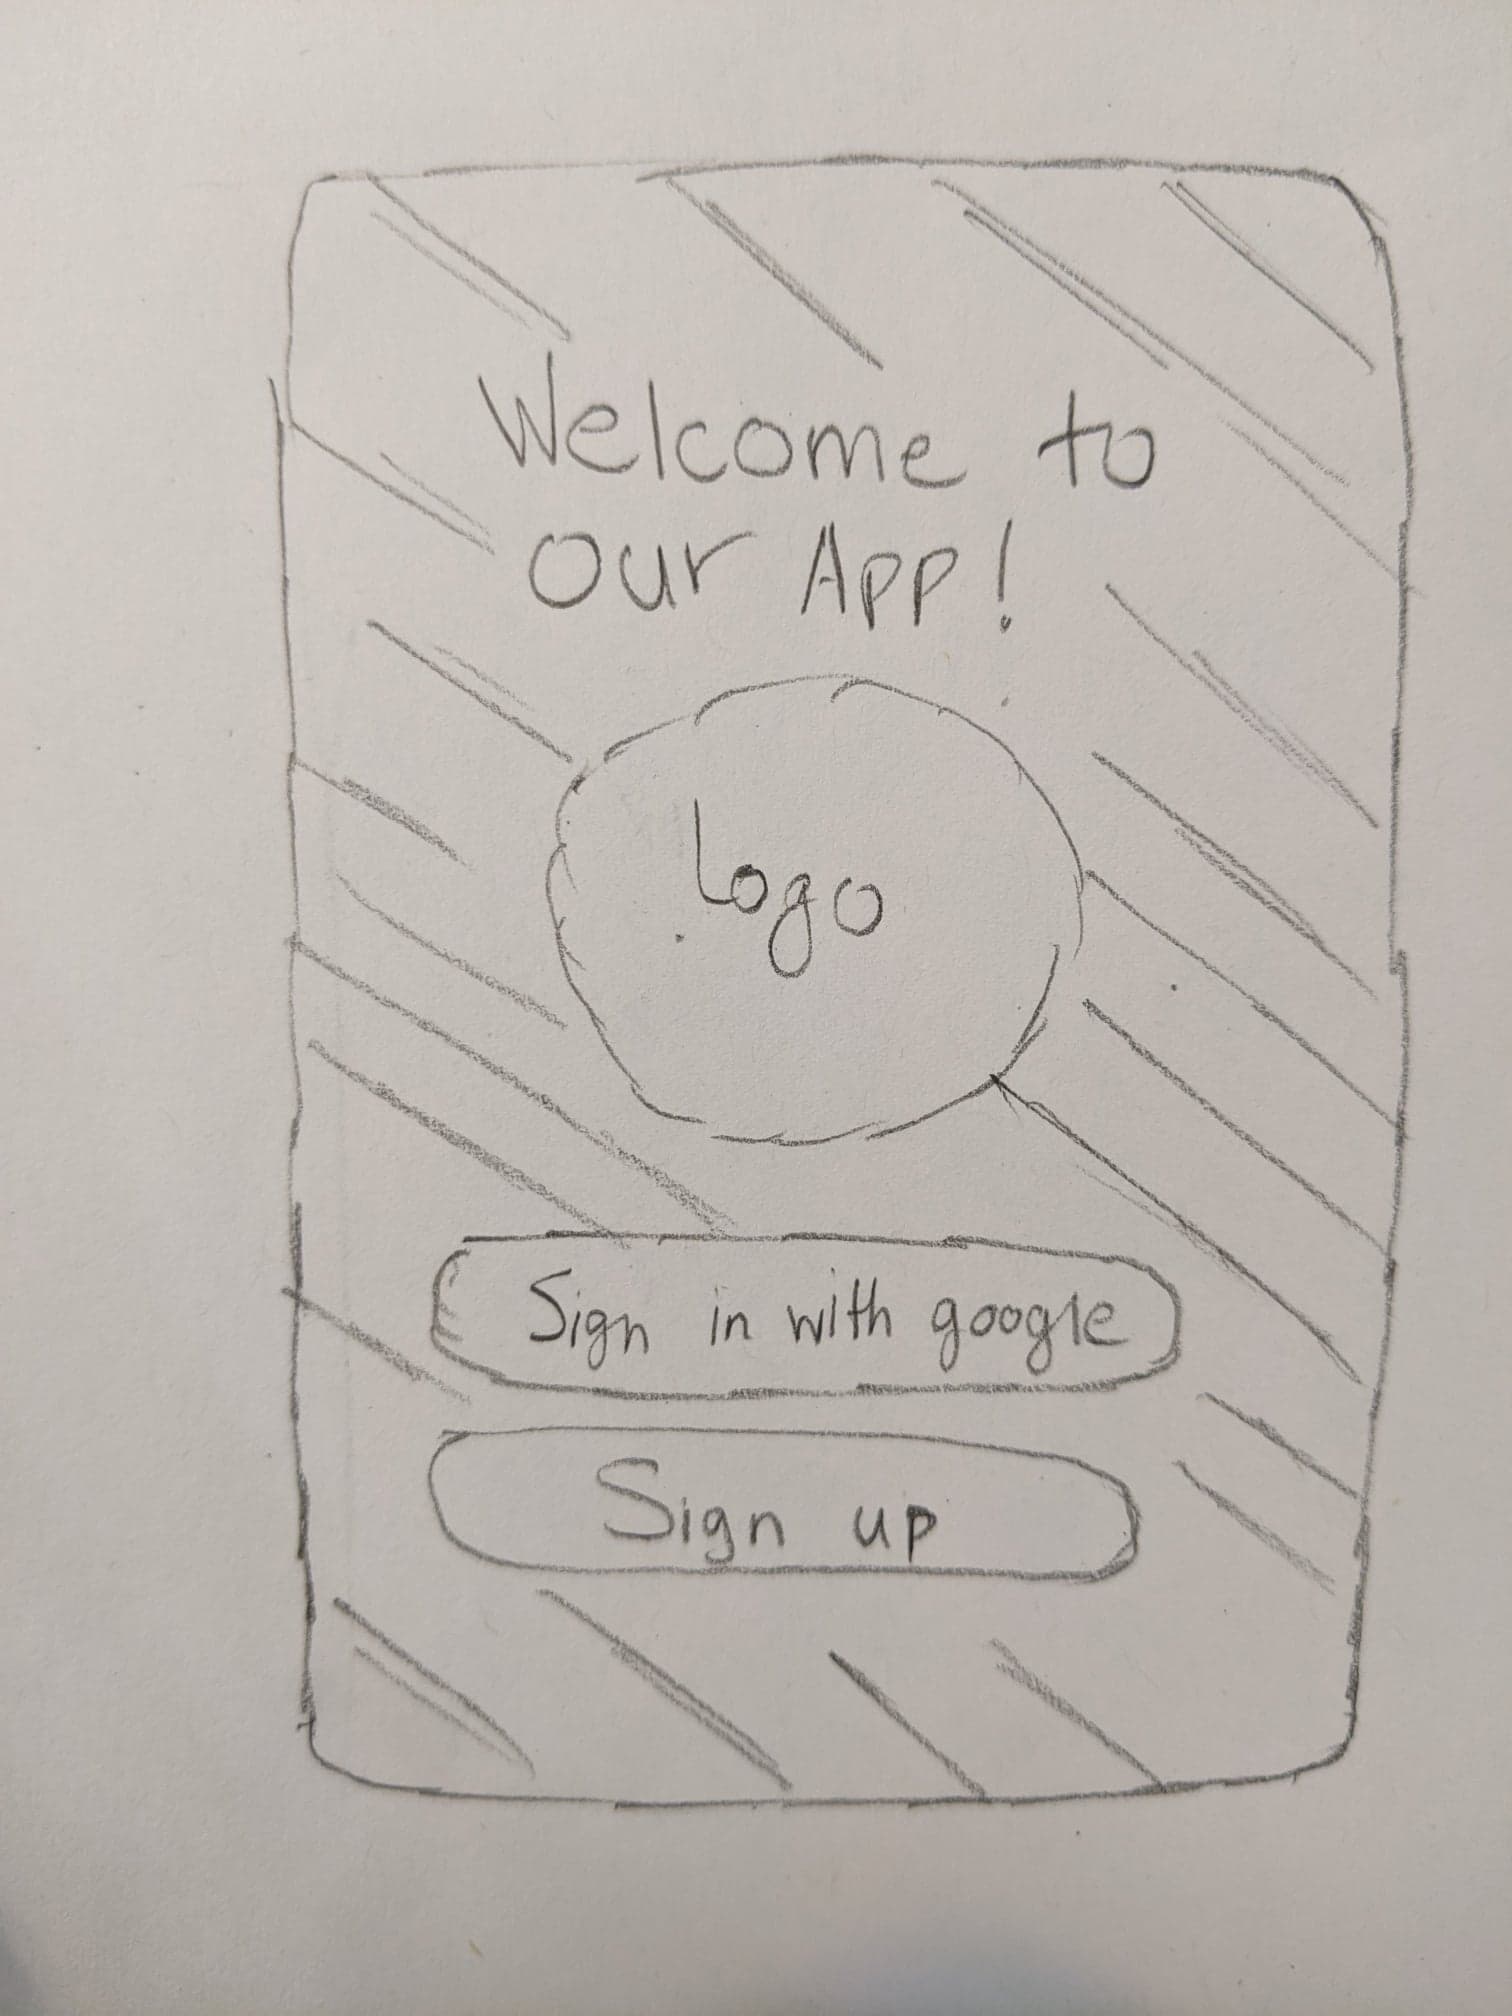 Welcome to
our App!
Logo
Sign in with google
Sign up